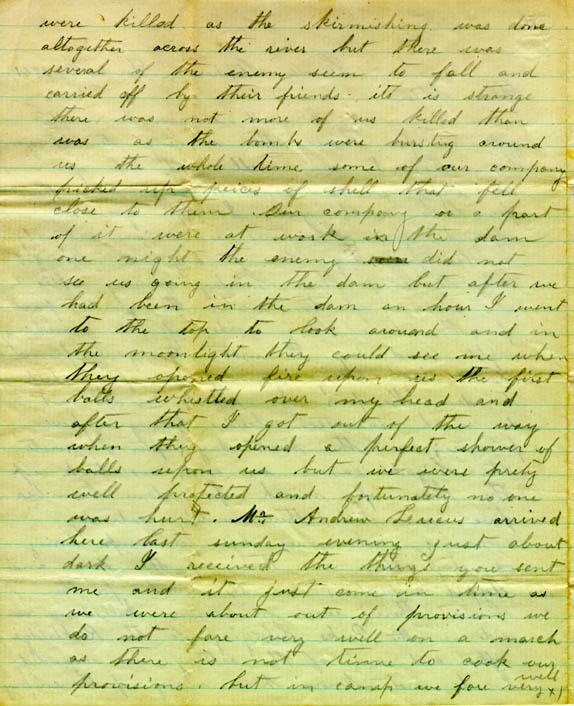 were killed as the skirmishing was done
altogether across the river but there was
several of the enemy seem to fall and
carried off by their friends. its is strange
there was not more of us killed than
was as the bombs were bursting around
us the whole time some of our company
picked up peices of shell that fell
close to them. Our company or a part
of it were at work in the dam
one night the enemy did not
see us going in the dam but after we
had been in the dam an hour I went
to the top to look around and in
the moonlight they could see me when
they opened fire upon us the first
balls whistled over my head and
after that I got out of the way
when they opened a perfect shower of
balls upon us but we were prety
well protected and fortunately no one
was hurt. Mr Andrew arrived
here last sunday evening just about
dark I received the things you sent
me and it just come in time as
we were about out of provisions we
do not fare very well on a march
as there is not time to cook our
provisions. but in camp we fare very well